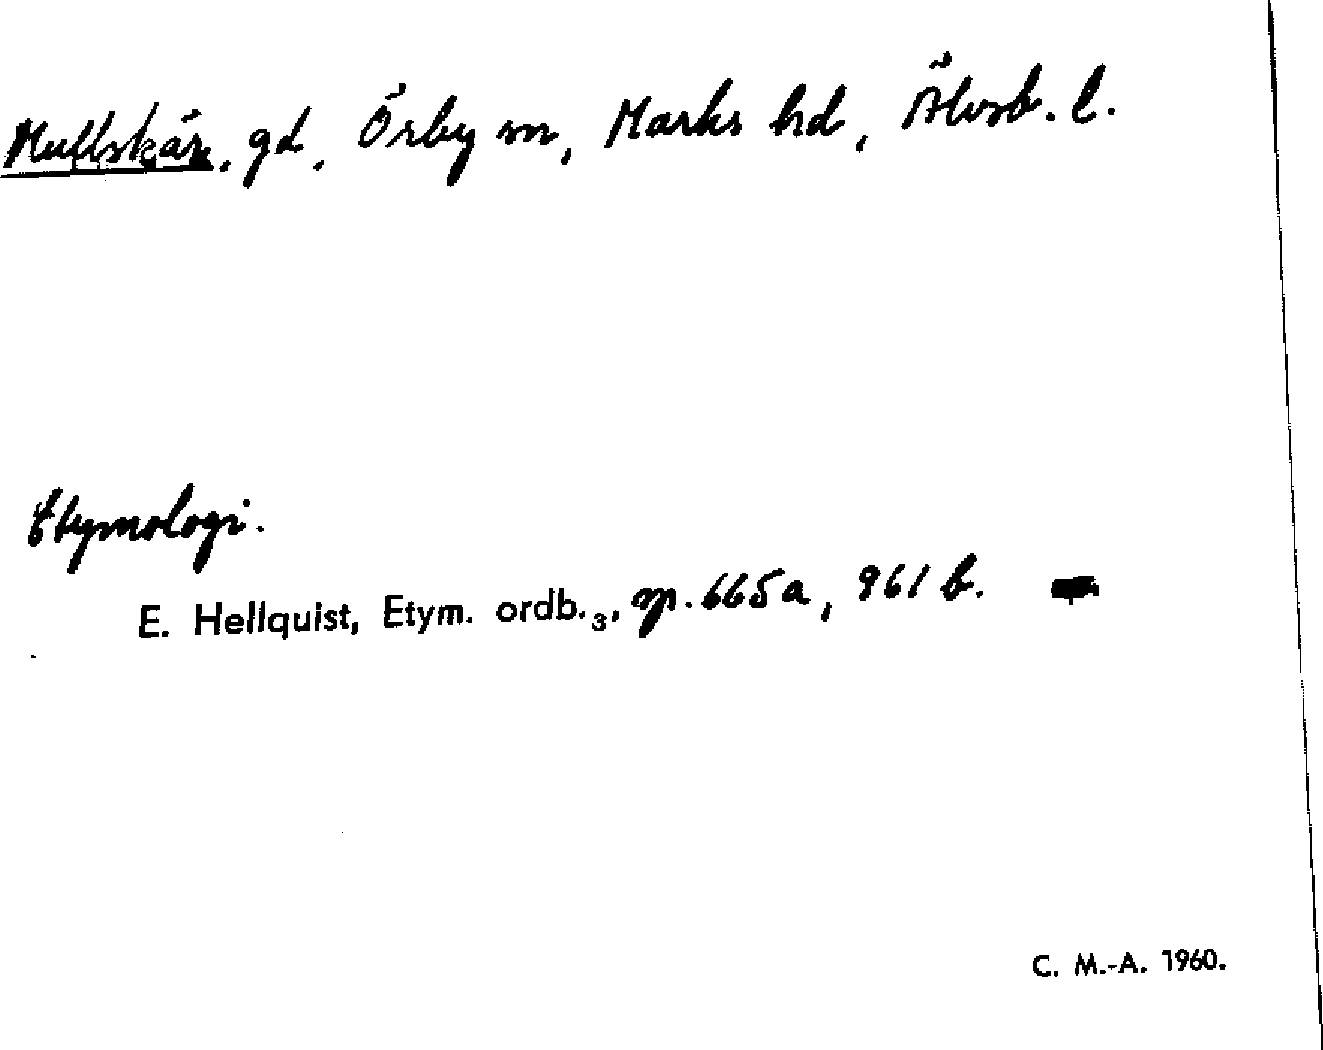 Mullskär, gd, Örby sn, Marks hd, Älvsb. l.
Etymologi.
E. Hellquist, Etym. ordb.₃, sp. 665a, 961 b.
C. M.-A. 1960.